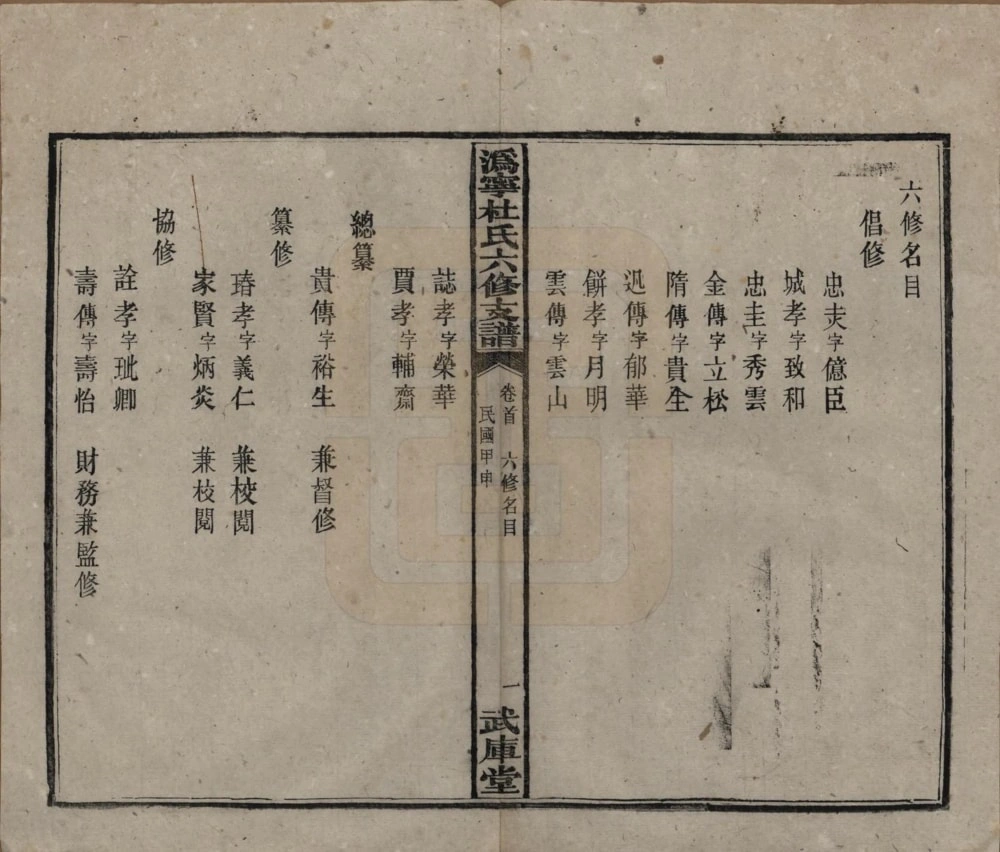 六修名目
倡修
忠夫字億臣
城孝字致和
忠圭字秀雲
金傳字立松
隋傳字貴全
迅傳字郁華
餅孝字月明
雲傳字雲山
溈寧杜氏六修支譜
卷首 六修名目
民國甲申
一
武庫堂
誌孝字榮華
賈孝字輔齋
總纂
貴傳字裕生 兼督修
纂修
瑃孝字義仁 兼校閱
家賢字炳炎 兼校閱
協修
詮孝字玼卿
壽傳字壽怡 財務兼監修